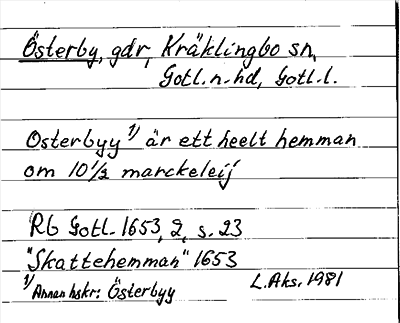 Österby, gdr, Kräklingbo sn,
Gotl. n. hd, Gotl. l.
Osterbyy 1/ är ett heelt hemman
om 10 1/2 marckeleij
Rb Gotl. 1653, 2, s. 23
"Skattehemman" 1653
1/ Annan hskr: Österbyy L. Aks. 1981